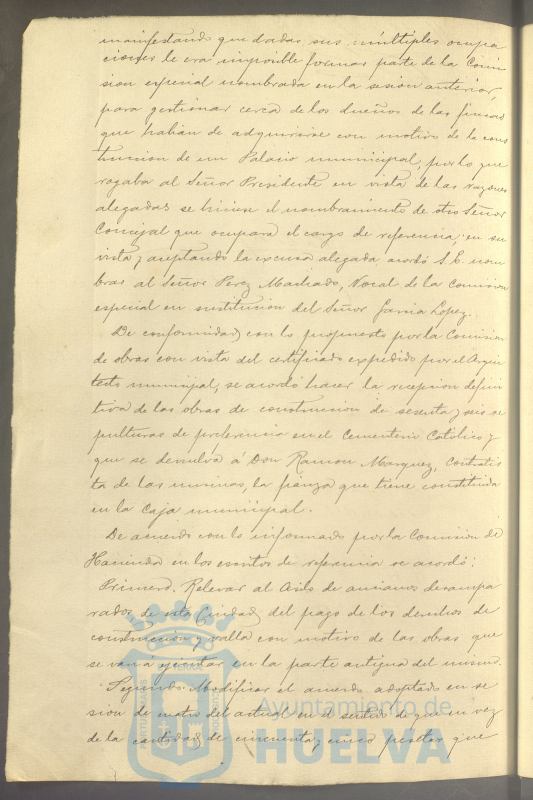 manifestando que dadas sus múltiples ocupa
ciones le era imposible formar parte de la Comi
sion especial nombrada en la sesion anterior,
para gestionar cerca de los dueños de las fincas
que habian de adquirirse con motivo de la cons
truccion de un Palacio municipal, por lo que
rogaba al Señor Presidente en vista de las razones
alegadas se hiciese el nombramiento de otro Señor
Concejal que ocupara el cargo de referencia, en su
vista y aceptando la escusa alegada acordó S. E. nom
brar al Señor Perez Machado, Vocal de la Comision
especial en sustitucion del Señor Garcia Lopez.
De conformidad con lo propuesto por la Comision
de obras con vista del certificado expedido por el Arqui
tecto municipal, se acordó hacer la recepcion defini
tiva de las obras de construccion de sesenta y seis se
pulturas de preferencia en el Cementerio Católico y
que se devuelva á Don Ramon Marquez, Contratis
ta de las mismas, la fianza que tiene constituida
en la Caja municipal.
De acuerdo con lo informado por la Comision de
Hacienda en los escritos de referencia se acordó:
Primero. Relevar al Asilo de ancianos desampa
rados de esta Ciudad del pago de los derechos de
construcción y valla con motivo de las obras que
se van á ejecutar en la parte antigua del mismo.
Segundo. Modificar el acuerdo adoptado en se
sion de cuatro del actual en el sentido de que en vez
de la cantidad de cincuenta y cinco pesetas que
Ayuntamiento de
HUELVA